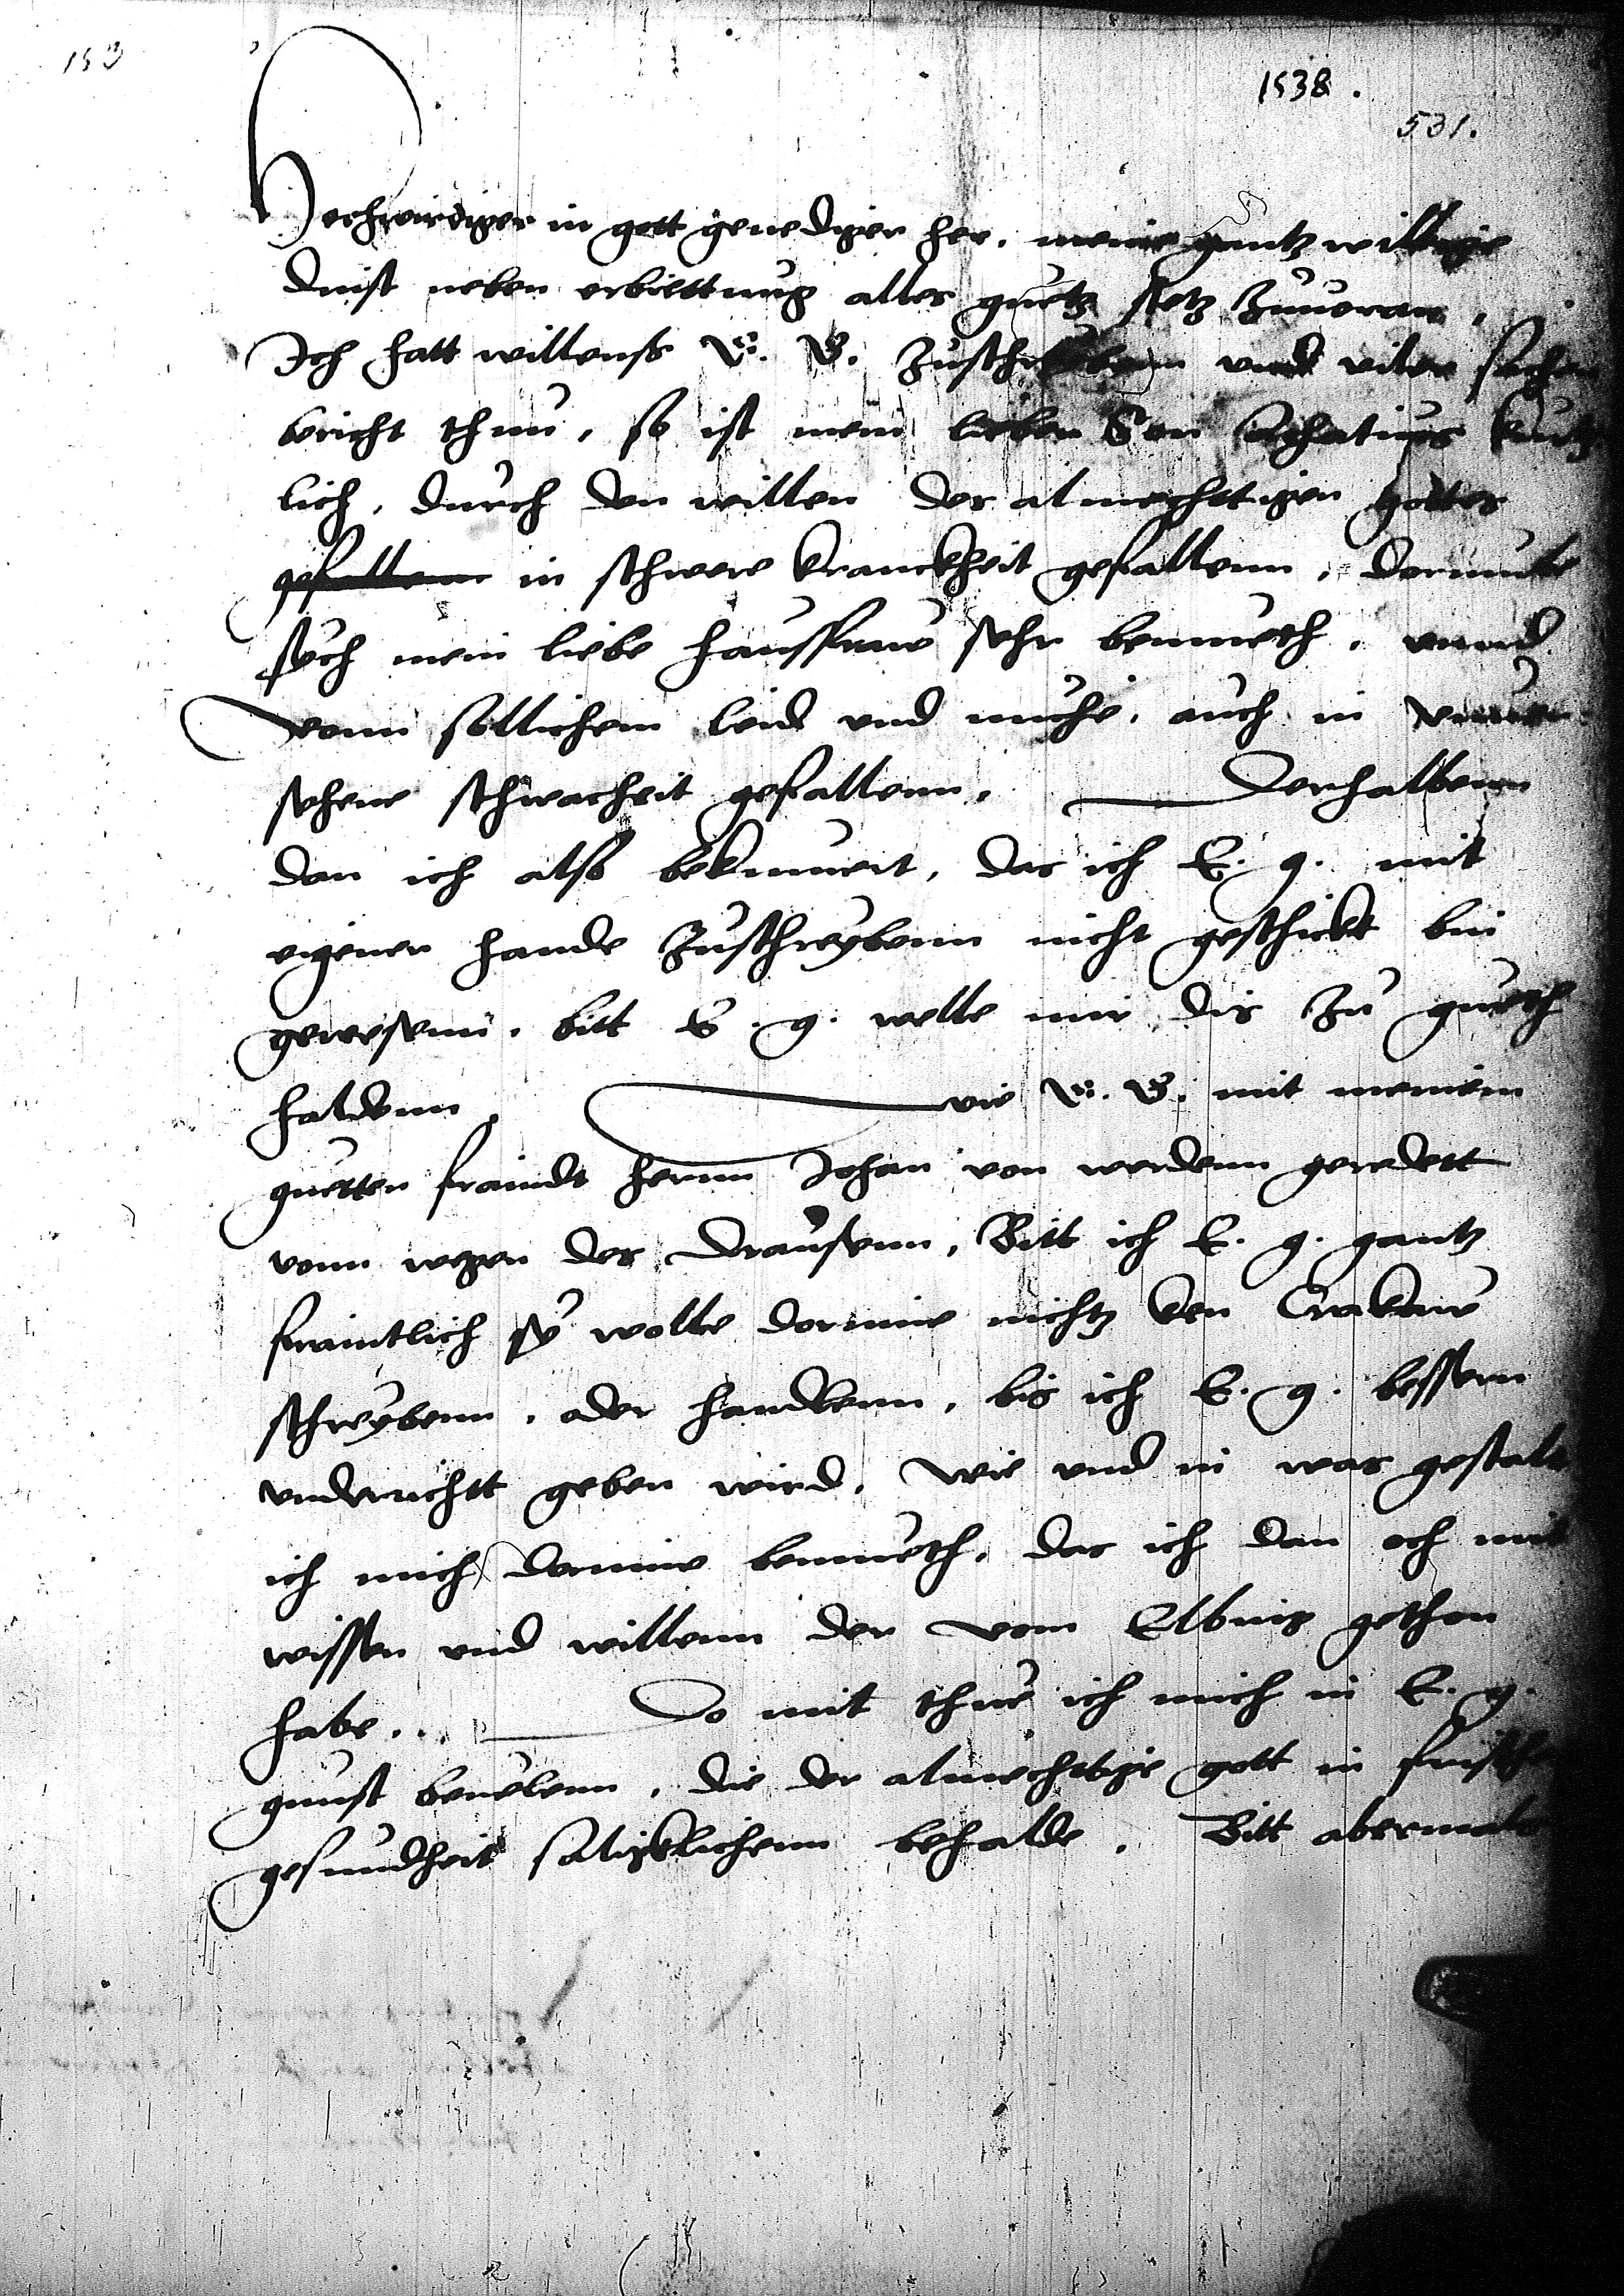 153
1538.
531.
Hochwirdiger in gott genediger her. meine gantz willige
dinst neben erbiettnug alles guetz stetz zuuoran.
Ich hatt willenss E. G. zuschreibenn vnd viler sachen
bericht thun, so ist mein lieber Son Achatius kurtz
lich, durch den willen des almechttigen gottes
gefallenn in schwere kranckheit gefallenn, dorumb
sych mein liebe haussfraw sehr bemueth, vnnd
vonn sollichem leid vnd muehe, auch in
sehene schwacheit gefallenn, Derhalbenn
dan ich also bekumert, das ich E. g. mit
eigener hande zuschreybenn nicht geschickt bin
gewesenn, bitt E. g. welle mir dis zu gueth
haldenn, wie E. G. mit meinem
guetten fraindt hernn Johan von werdenn geredett
vonn wegen des Drausenn, Bitt ich E. g. gantz
fraintlich sy wolle dorinne nichtz ken Crakaw
schreybenn, oder handlenn, bis ich E. g. bessern
vnderrichtt geben wird, wie vnd in was gestalt
ich mich dorinne bemueth, das ich dan och mit
wissen vnd willenn der vom Elbing gethon
habe. Do mit thue ich mich in E. g.
gunst beuelenn, die der almechttige gott in frischer
gesundheit saligklichenn behalde. Bitt abermals